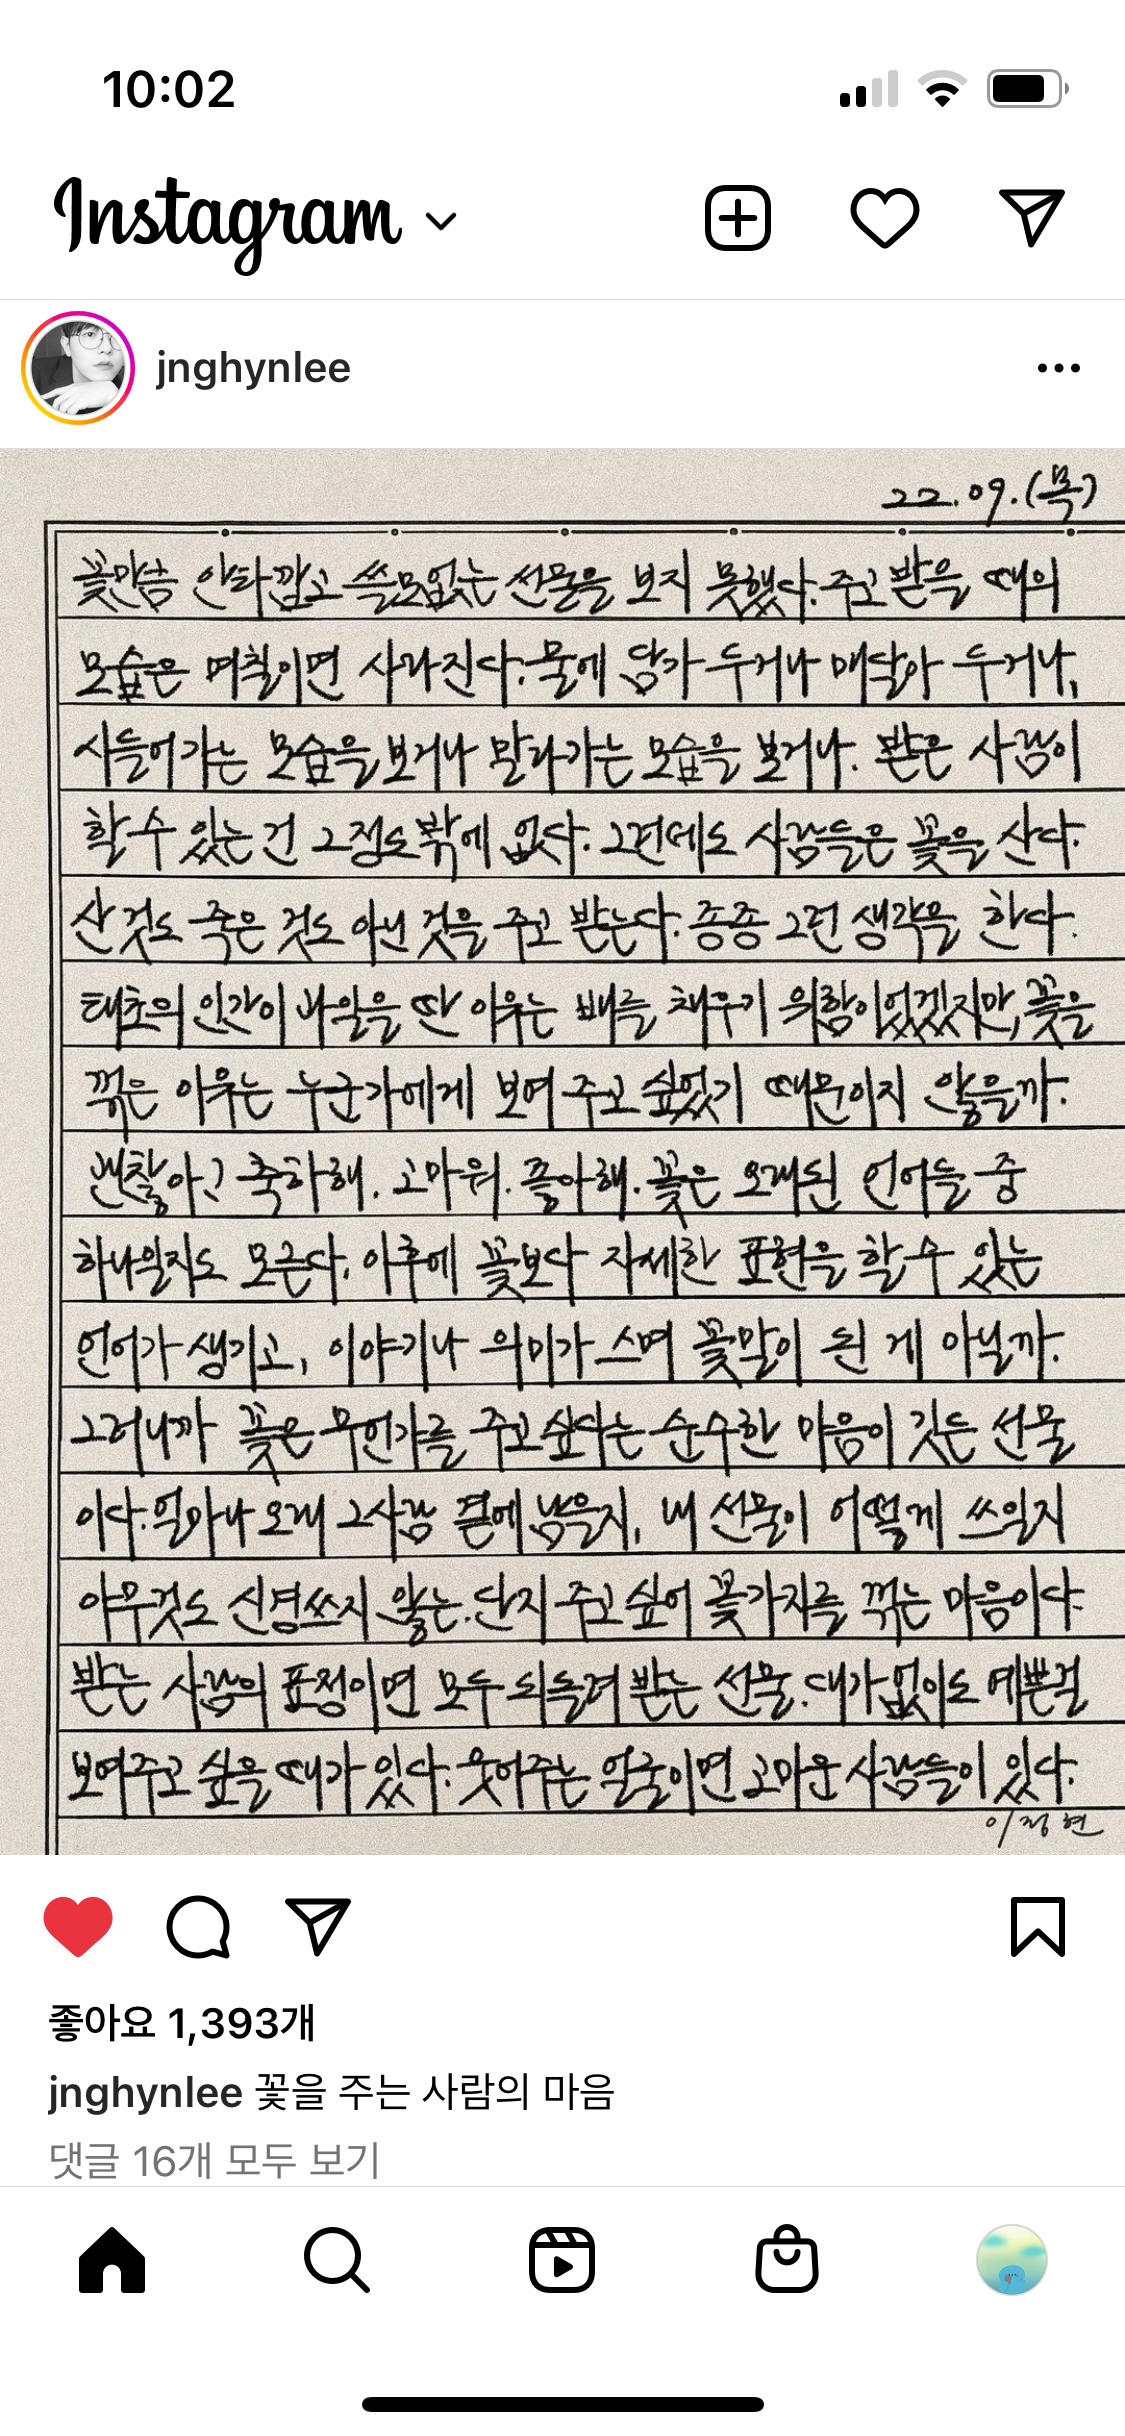 10:02
Instagram
jnghynlee
22.09.(목)
꽃만큼 안타깝고 쓸모없는 선물을 보지 못했다. 주고 받을 때의
모습은 며칠이면 사라진다. 물에 담가 두거나 매달아 두거나,
시들어가는 모습을 보거나 말라가는 모습을 보거나. 받은 사람이
할 수 있는 건 그 정도밖에 없다. 그런데도 사람들은 꽃을 산다.
산 것도 죽은 것도 아닌 것을 주고 받는다. 종종 그런 생각을 한다.
태초의 인간이 과일을 딴 이유는 배를 채우기 위함이었겠지만, 꽃을
꺾은 이유는 누군가에게 보여 주고 싶었기 때문이지 않을까.
괜찮아? 축하해. 고마워. 좋아해. 꽃은 오래된 언어들 중
하나일지도 모른다. 이후에 꽃보다 자세한 표현을 할 수 있는
언어가 생기고, 이야기나 의미가 스며 꽃말이 된 게 아닐까.
그러니까 꽃은 무언가를 주고 싶다는 순수한 마음이 깃든 선물
이다. 얼마나 오래 그 사람 곁에 남을지, 내 선물이 어떻게 쓰일지
아무것도 신경쓰지 않는. 단지 주고 싶어 꽃가지를 꺾는 마음이다.
받는 사람의 표정이면 모두 되돌려 받는 선물. 대가 없이도 예쁜 걸
보여주고 싶을 때가 있다. 웃어주는 얼굴이면 고마운 사람들이 있다.
이정현
좋아요 1,393개
jnghynlee 꽃을 주는 사람의 마음
댓글 16개 모두 보기